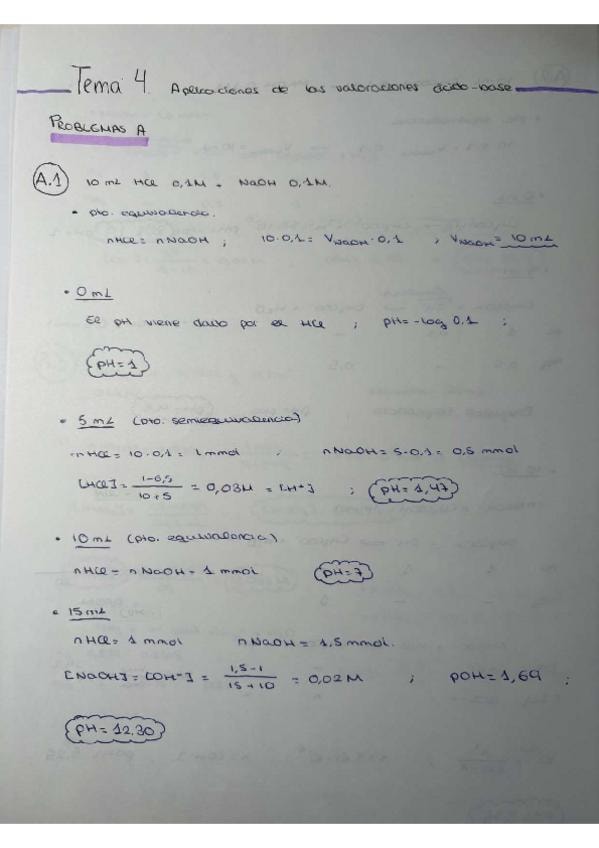 Tema 4. Aplicaciones de las valoraciones ácido-base
PROBLEMAS A
A.1 10 mL HCl 0,1M + NaOH 0,1M.
• pto. equivalencia.
nHCl = nNaOH ; 10·0,1 = V NaOH · 0,1 ; V NaOH = 10 mL
• 0 mL
El pH viene dado por el HCl ; pH = -log 0,1 ;
pH = 1
• 5 mL (pto. semiequivalencia)
nHCl = 10·0,1 = 1 mmol . nNaOH = 5·0,1 = 0,5 mmol
[HCl] = 1-0,5 / 10+5 = 0,03M = [H+] ; pH = 1,47
• 10 mL (pto. equivalencia)
nHCl = nNaOH = 1 mmol pH = 7
• 15 mL
nHCl = 1 mmol nNaOH = 1,5 mmol.
[NaOH] = [OH-] = 1,5-1 / 15+10 = 0,02 M ; pOH = 1,69 ;
pH = 12.30